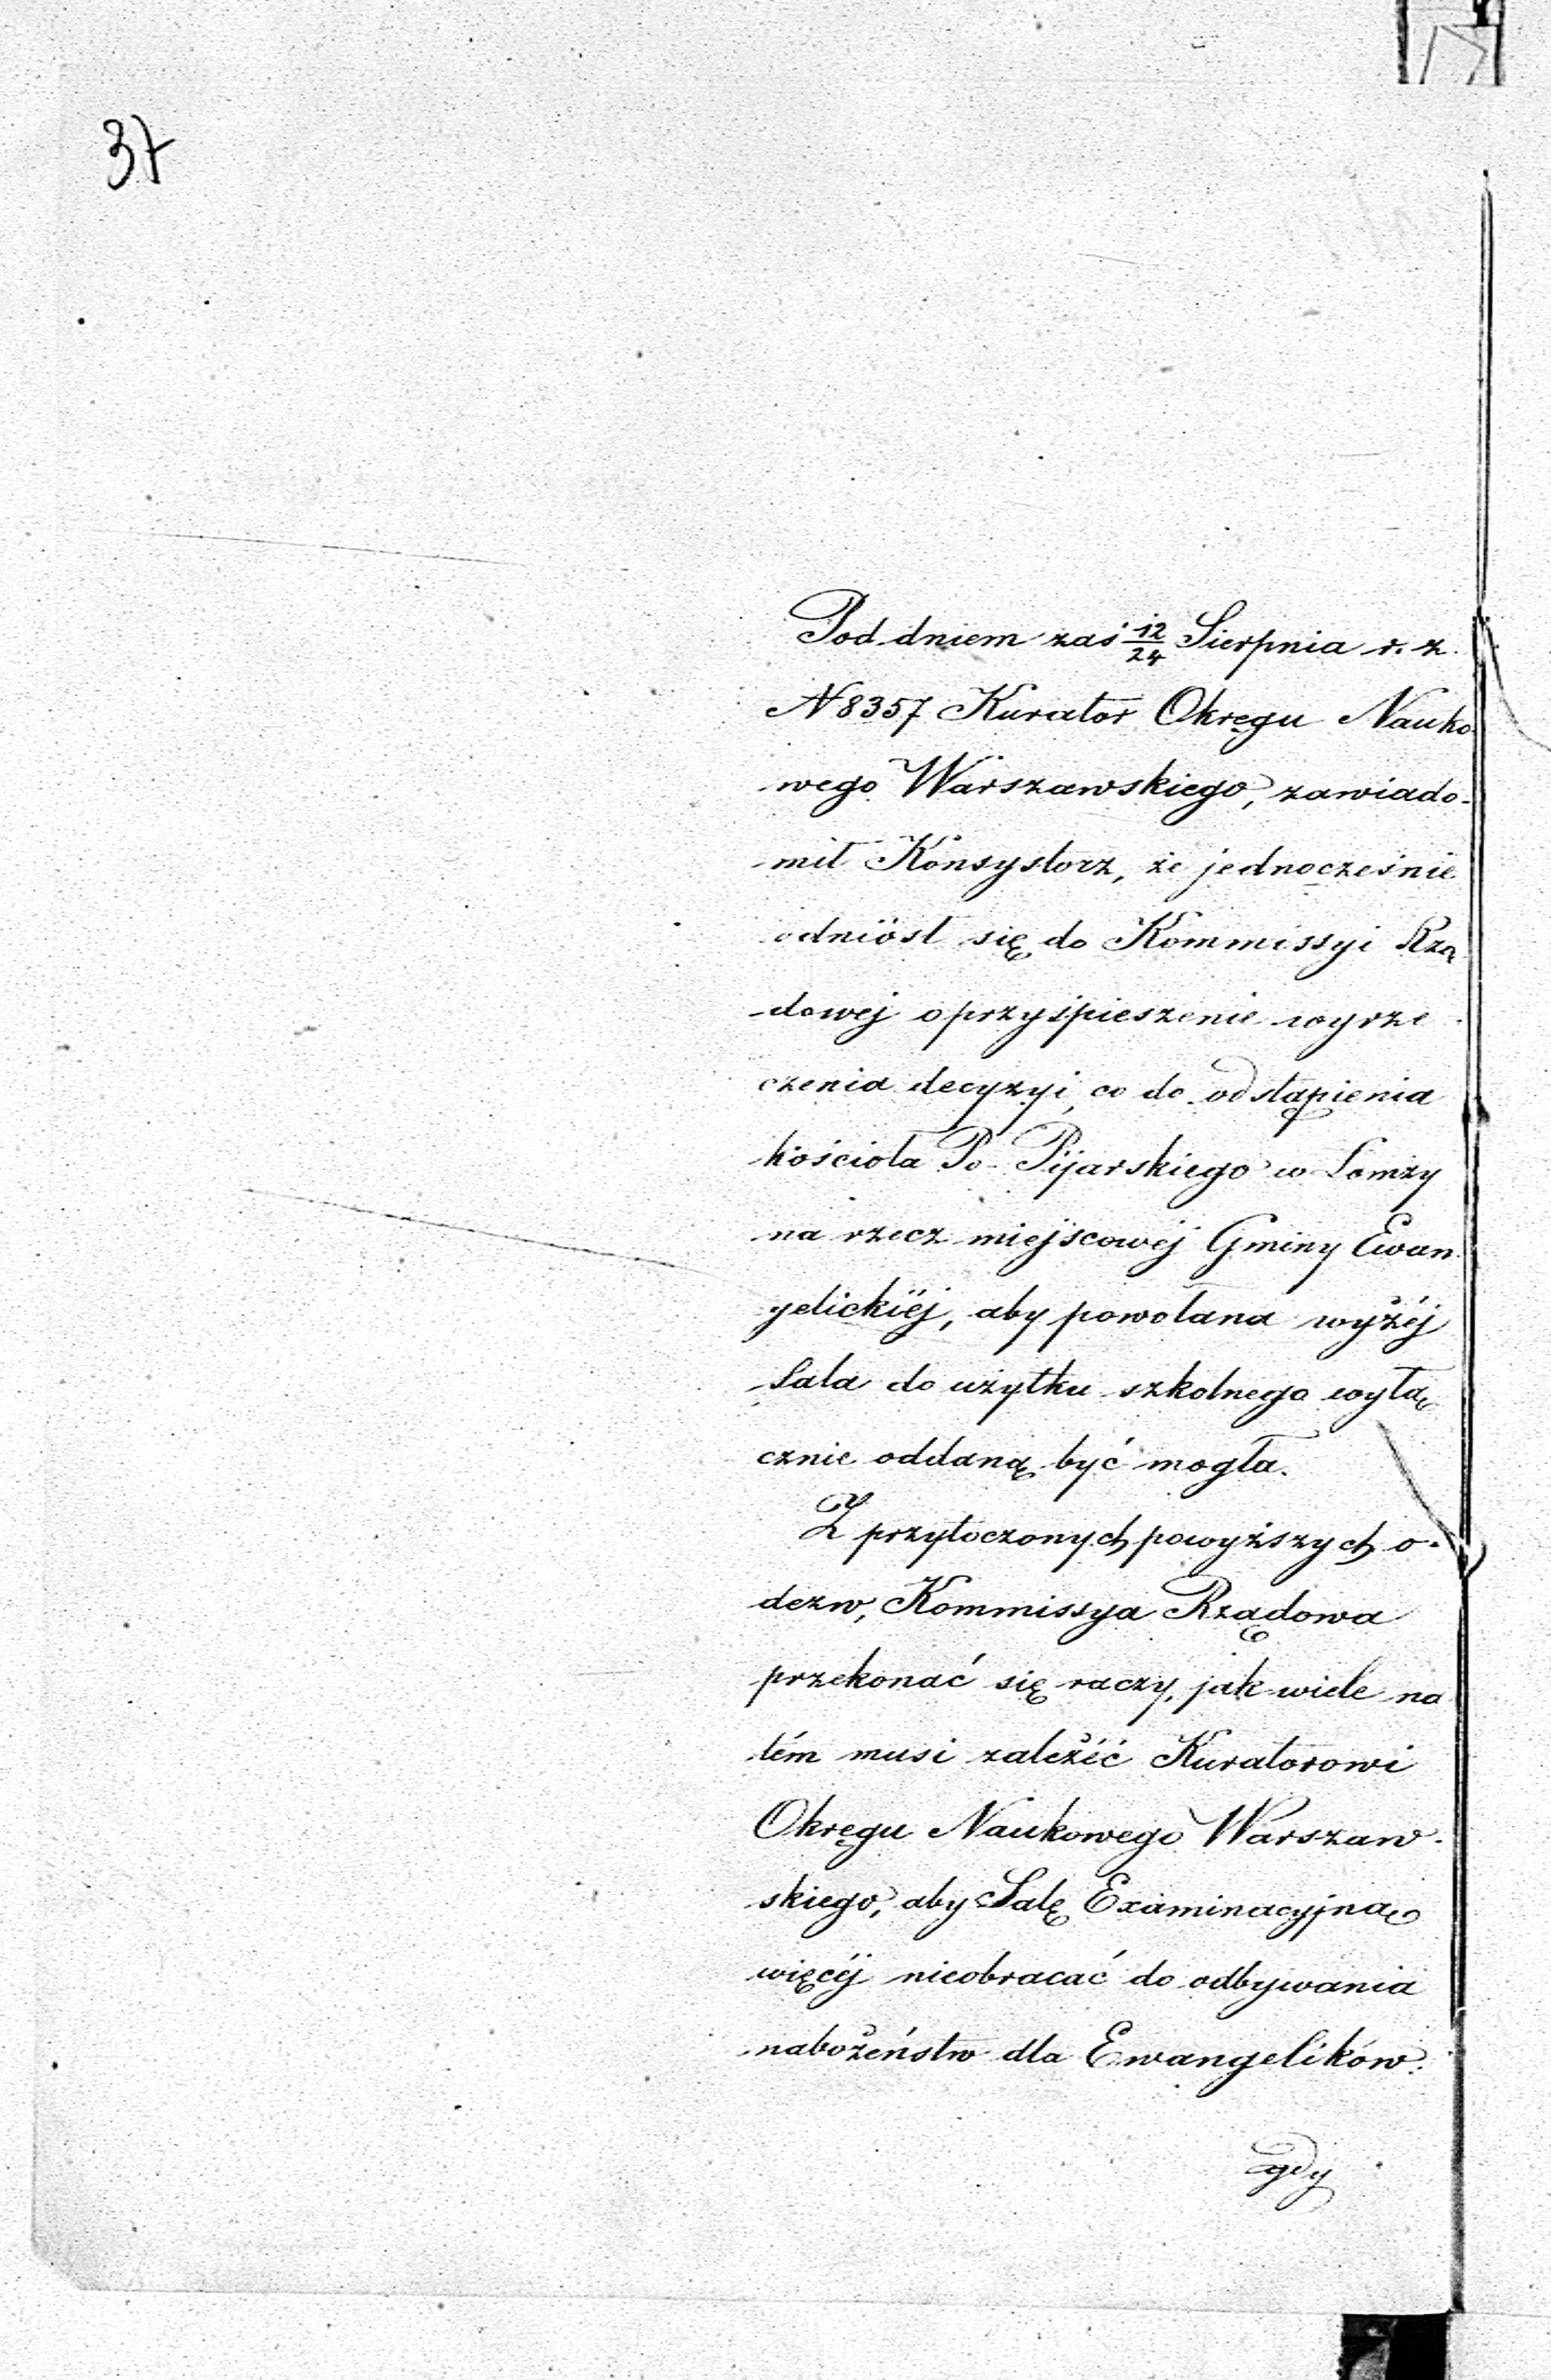 37
Pod dniem zaś 12/24 Sierpnia r. z.
N 8357 Kurator Okręgu Nauko-
wego Warszawskiego, zawiado-
mił Konsystorz, że jednocześnie
odniósł się do Kommissyi Rzą
dowej o przyśpieszenie wyrze
czenia decyzyi, co do odstąpienia
kościoła Po-Pijarskiego w Łomży
na rzecz miejscowéj Gminy Ewan
gelickiéj, aby powołana wyżéj
Sala do użytku szkolnego wyłą
cznie oddaną być mogła.
Z przytoczonych powyższych o-
dezw, Kommissya Rządowa
przekonać się raczy, jak wiele na
tém musi zależéć Kuratorowi
Okręgu Naukowego Warszaw-
skiego, aby Salę Examinacyjną
więcéj nieobracać do odbywania
nabożeństw dla Ewangelików:
gdy